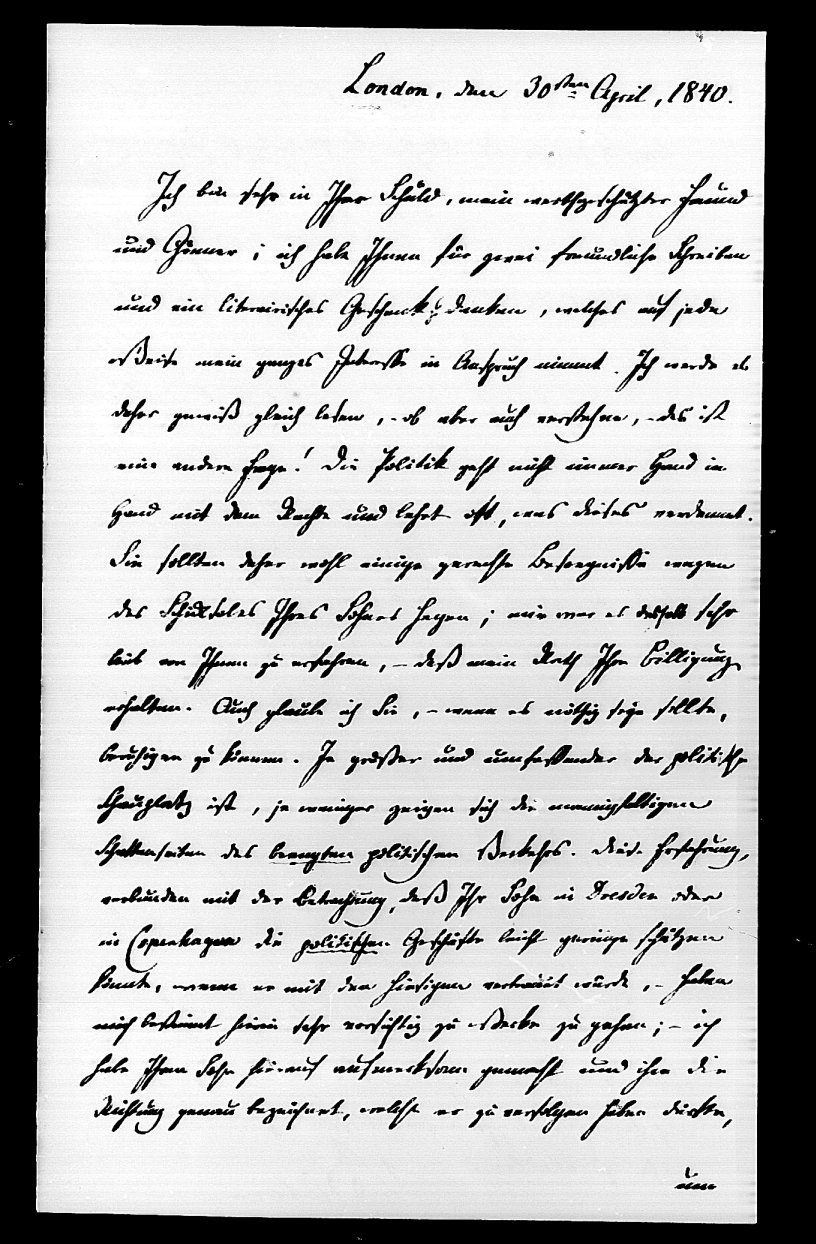 London, den 30sten April, 1840.
Ich bin sehr in Ihrer Schuld, mein werthgeschätzter Freund
und Gönner; ich habe Ihnen für zwei freundliche Schreiben
und ein literairisches Geschenk zu danken, welches auf jede
Weise mein ganzes Interesse in Anspruch nimmt. Ich werde es
daher gewiß gleich lesen, - ob aber auch verstehen, - das ist
eine andere Frage! Die Politik geht nicht immer Hand in
Hand mit dem Rechte und lehrt oft, was dieses verdammt.
Sie sollten daher wohl einige gerechte Besorgnisse wegen
des Schicksales Ihres Sohnes hegen; mir war es deshalb sehr
lieb von Ihnen zu erfahren, - daß mein Rath Ihre Billigung
erhalten. Auch glaube ich Sie, - wenn es nöthig seyn sollte,
beruhigen zu können. Je größer und umfassender der politische
Schauplatz ist, je weniger zeigen sich die mannigfaltigen
Schattenseiten des beengten politischen Verkehrs. Diese Erfahrung,
verbunden mit der Betrachtung, daß Ihr Sohn in Dresden oder
in Copenhagen die politischen Geschäfte leicht geringe schätzen
könnte, wenn er mit den hiesigen vertraut würde, - haben
mich bestimmt hierin sehr vorsichtig zu Werke zu gehen; - ich
habe Ihren Sohn hierauf aufmerksam gemacht und ihm die
Richtung genau bezeichnet, welche er zu verfolgen haben dürfte,
um